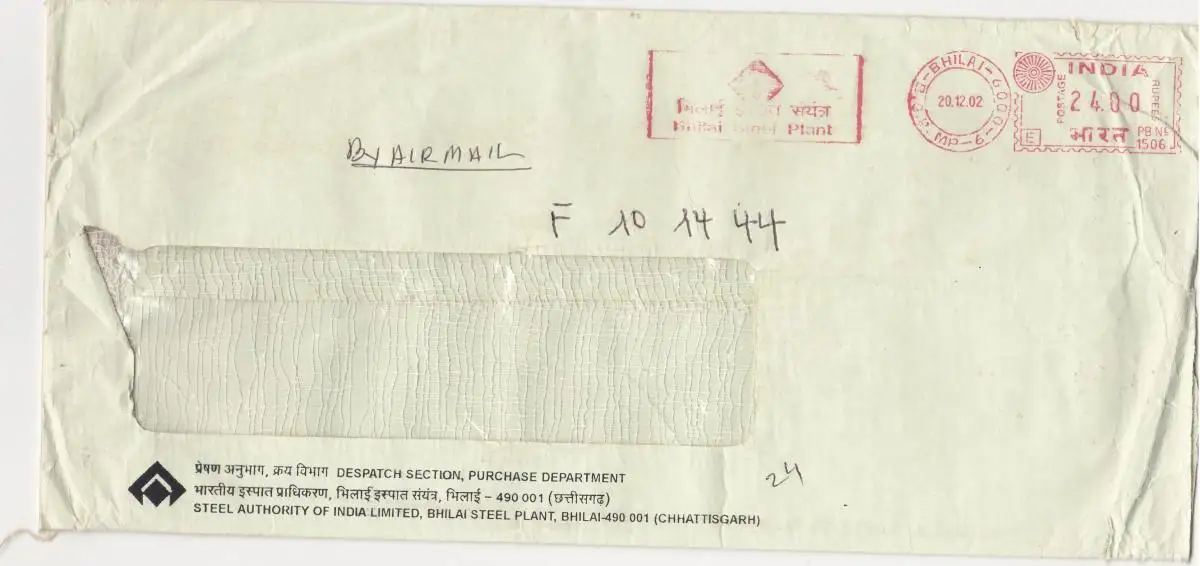 भिलाई इस्पात सयंत्र
Bhilai Steel Plant
BHILAI
20.12.02
MP-6
INDIA
POSTAGE
24.00
RUPEES
E
भारत
PB No
1506
By AIR MAIL
F 10 14 44
प्रेषण अनुभाग, क्रय विभाग DESPATCH SECTION, PURCHASE DEPARTMENT
भारतीय इस्पात प्राधिकरण, भिलाई इस्पात संयंत्र, भिलाई – 490 001 (छत्तीसगढ़)
STEEL AUTHORITY OF INDIA LIMITED, BHILAI STEEL PLANT, BHILAI-490 001 (CHHATTISGARH)
24